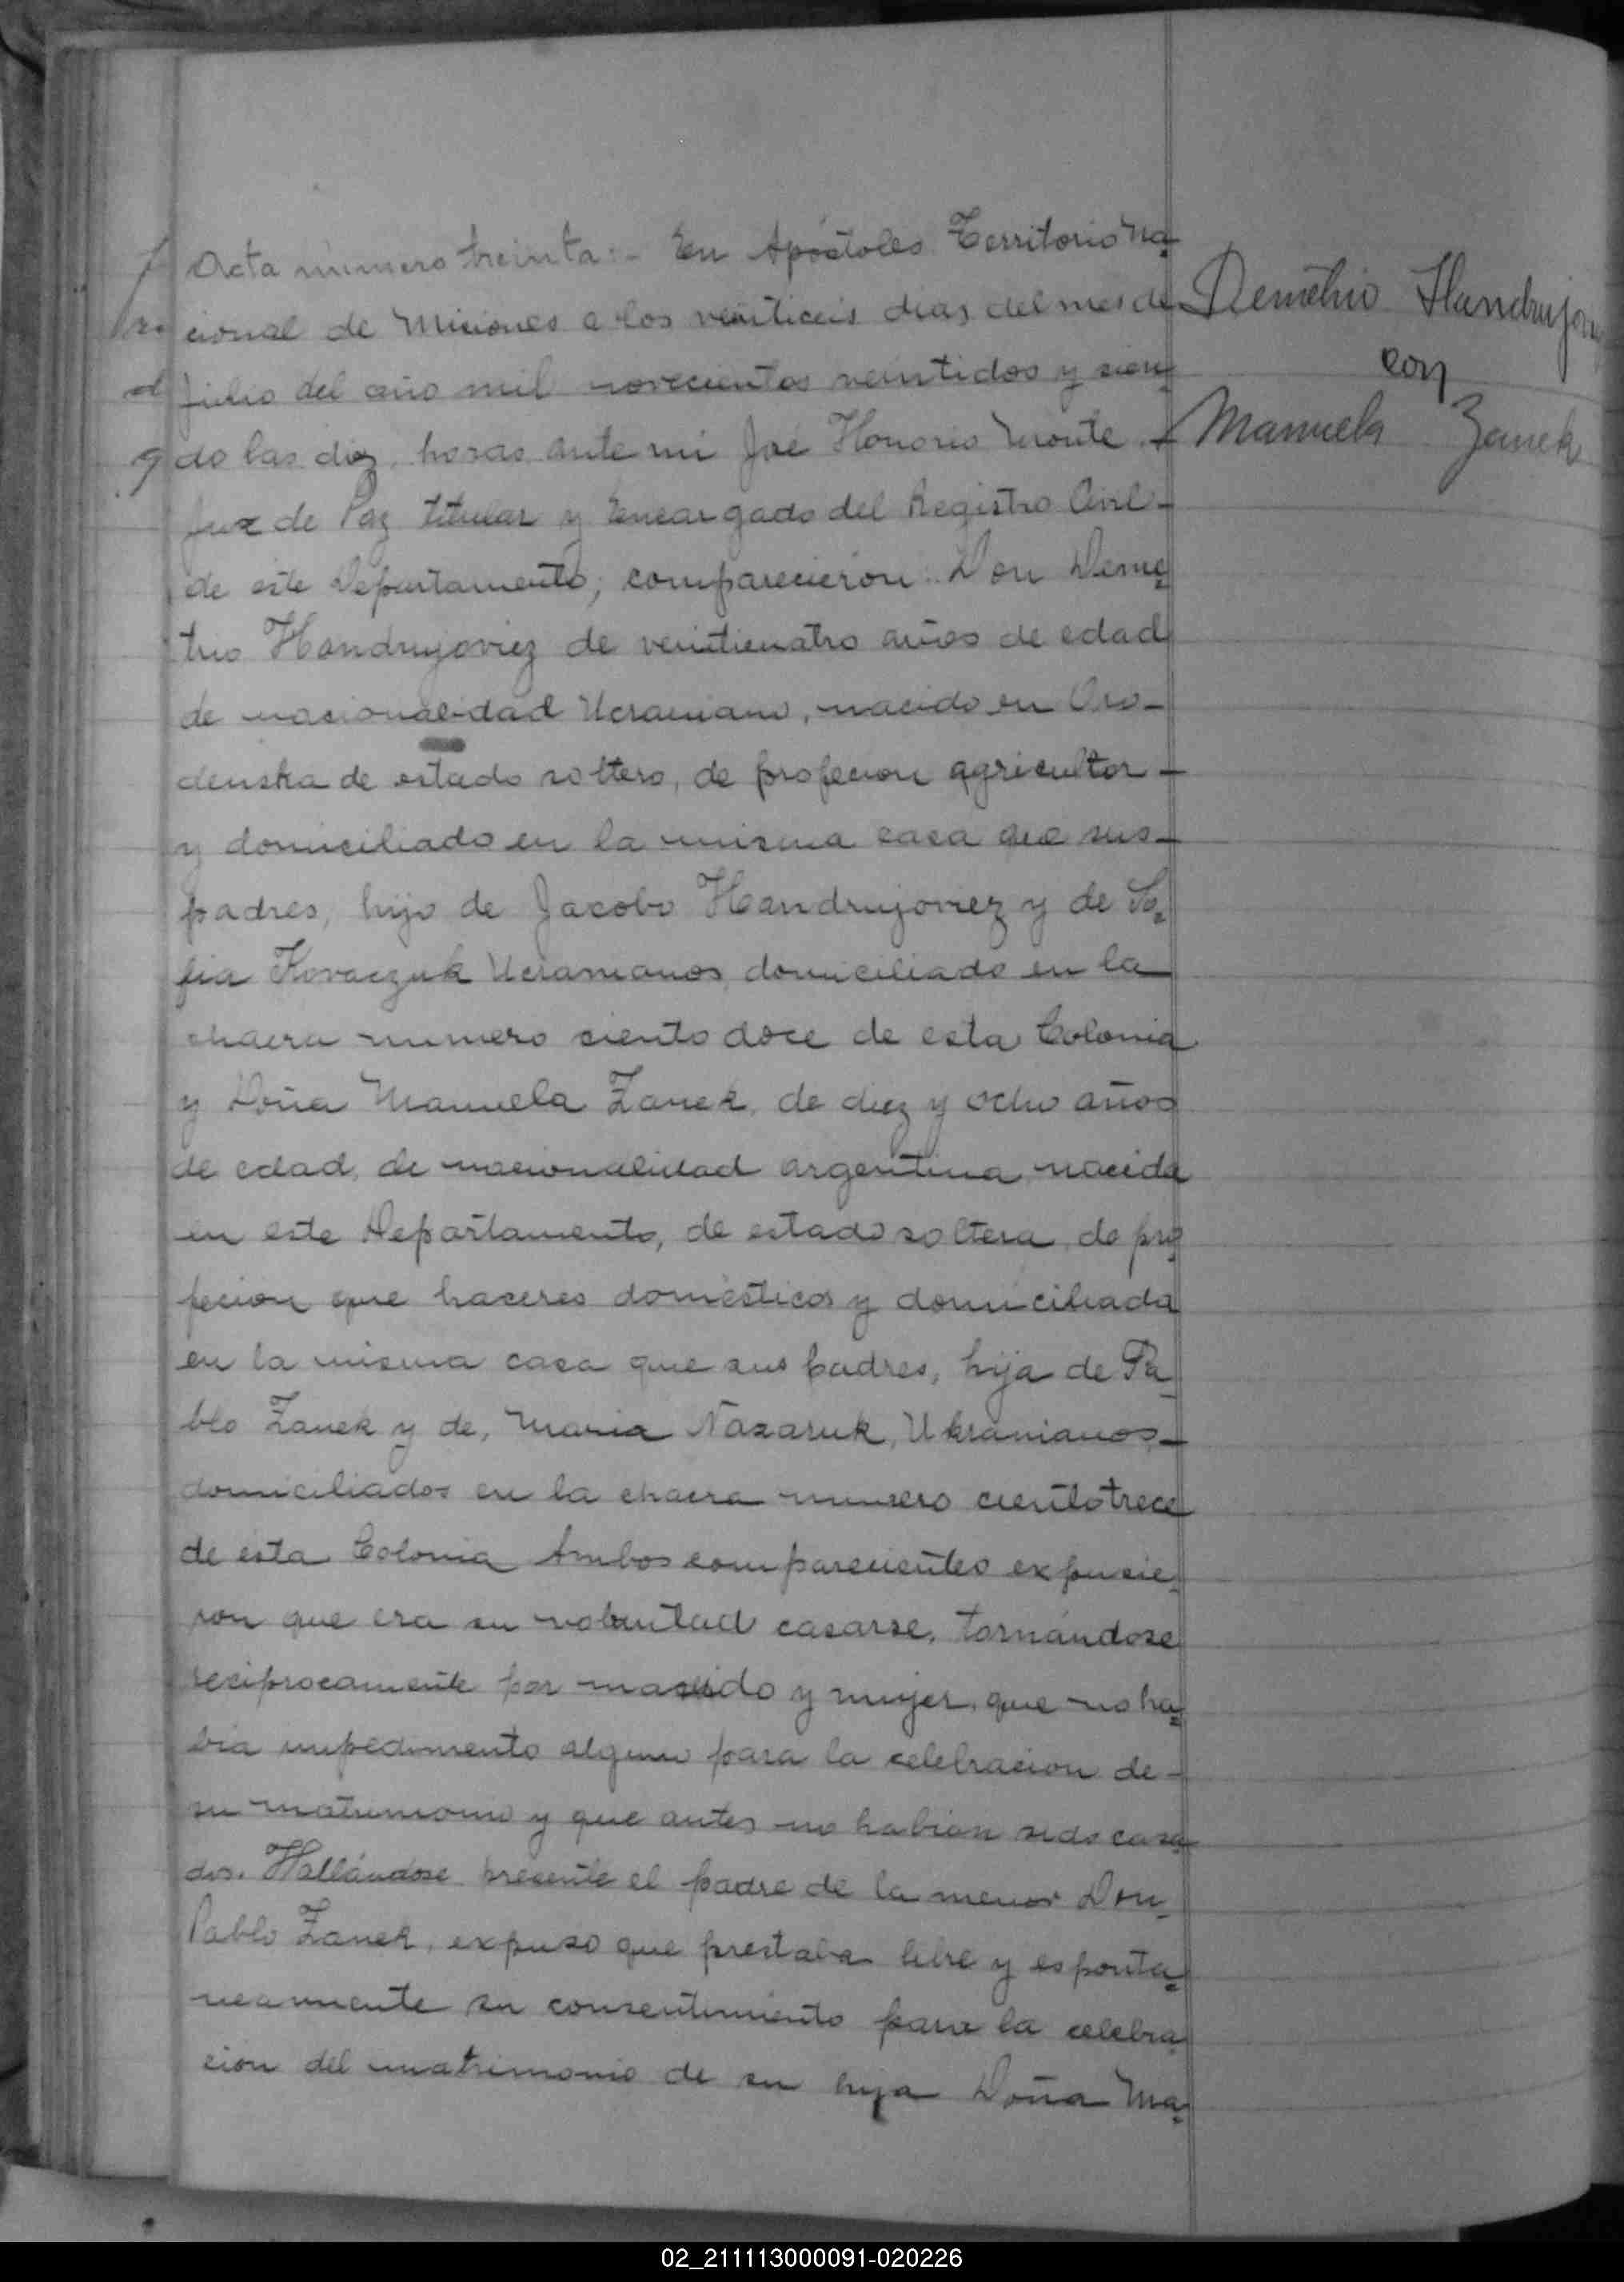 Acta número treinta:- En Apóstoles Territorio Na-
cional de Misiones a los veinticeis dias del mes de
Julio del año mil novecientos veintidos y sien-
do las diez horas ante mi José Honorio Monte
Juez de Paz titular y Encargado del Registro Civil-
de este Departamento; comparecieron: Don Deme-
trio Handrujoviez de veinticuatro años de edad
de nacionalidad Ucraniano, nacido en Oro-
denska de estado soltero, de profecion agricultor-
y domiciliado en la misma casa que sus-
padres, hijo de Jacobo Handrujoviez y de So-
fia Kovaczuk Ucranianos domiciliado en la
chacra numero ciento doce de esta Colonia
y Doña Manuela Zanek, de diez y ocho años
de edad, de nacionalidad argentina, nacida
en este Departamento, de estado soltera, de pro
fecion que haceres domésticos y domiciliada
en la misma casa que sus padres, hija de Pa-
blo Zanek y de, Maria Nazaruk, Ukranianos-
domiciliados en la chacra numero ciento trece
de esta Colonia Ambos comparecientes expusie-
ron que era su voluntad casarse, tornándose
reciprocamente por marido y mujer, que no ha-
bia impedimento alguno para la celebracion de-
su matrimonio y que antes no habian sido casa-
dos. Hallándose presente el padre de la menor Don-
Pablo Zanek, expuso que prestaba libre y esponta-
neamente su consentimiento para la celebra-
cion del matrimonio de su hija Doña Ma-
Demetrio Handrujoviez
con
Manuela Zanek
02_211113000091-020226